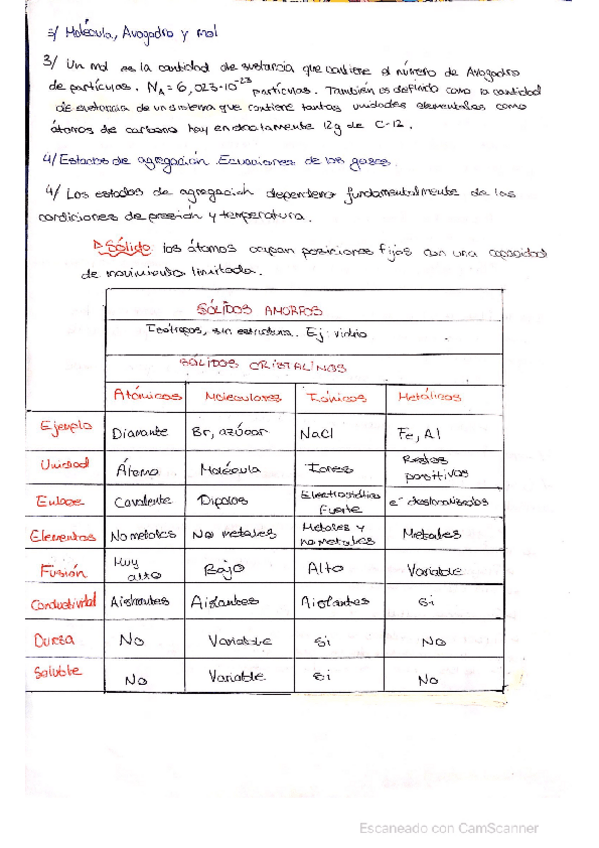 3/ Molécula, Avogadro y mol
3/ Un mol es la cantidad de sustancia que contiene el número de Avogadro
de partículas. NA = 6,023·10⁻²³ partículas. También es definido como la cantidad
de sustancia de un sistema que contiene tantas unidades elementales como
átomos de carbono hay en exactamente 12g de C-12.
4/ Estados de agregación. Ecuaciones de los gases.
4/ Los estados de agregación dependen fundamentalmente de las
condiciones de presión y temperatura.
Sólido: los átomos ocupan posiciones fijas con una capacidad
de movimiento limitada.
SÓLIDOS AMORFOS
Isótropos, sin estructura. Ej: vidrio
SÓLIDOS CRISTALINOS
Atómicos Moleculares Iónicos Metálicos
Ejemplo Diamante Br, azúcar NaCl Fe, Al
Unidad Átomo Molécula Iones Restos positivos
Enlace Covalente Dipolos Electrostático fuerte e⁻ deslocalizados
Elementos No metales No metales Metales y no metales Metales
Fusión Muy alto Bajo Alto Variable
Conductividad Aislantes Aislantes Aislantes Si
Dureza No Variable Si No
Soluble No Variable Si No
Escaneado con CamScanner